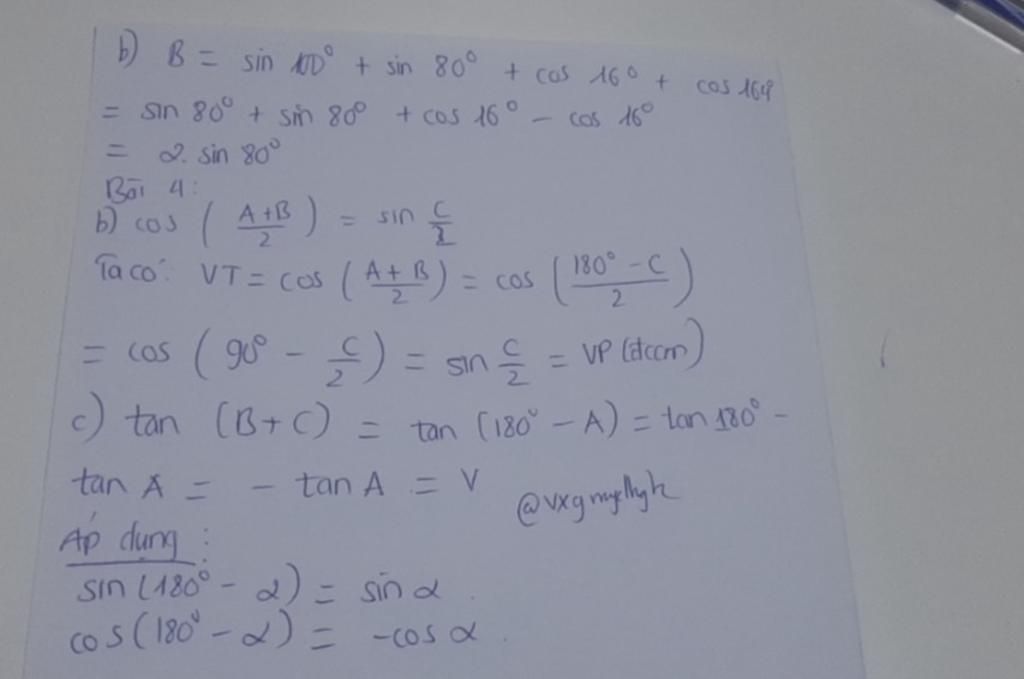 b) B = sin 100° + sin 80° + cos 16° + cos 164°
= sin 80° + sin 80° + cos 16° - cos 16°
= 2. sin 80°
Bài 4:
b) cos (A+B/2) = sin C/2
Ta có: VT = cos (A+B/2) = cos (180° - C/2)
= cos (90° - C/2) = sin C/2 = VP (đccm)
c) tan (B+C) = tan (180° - A) = tan 180° -
tan A = - tan A = V
Áp dụng :
sin (180° - α) = sin α.
cos (180° - α) = -cos α.